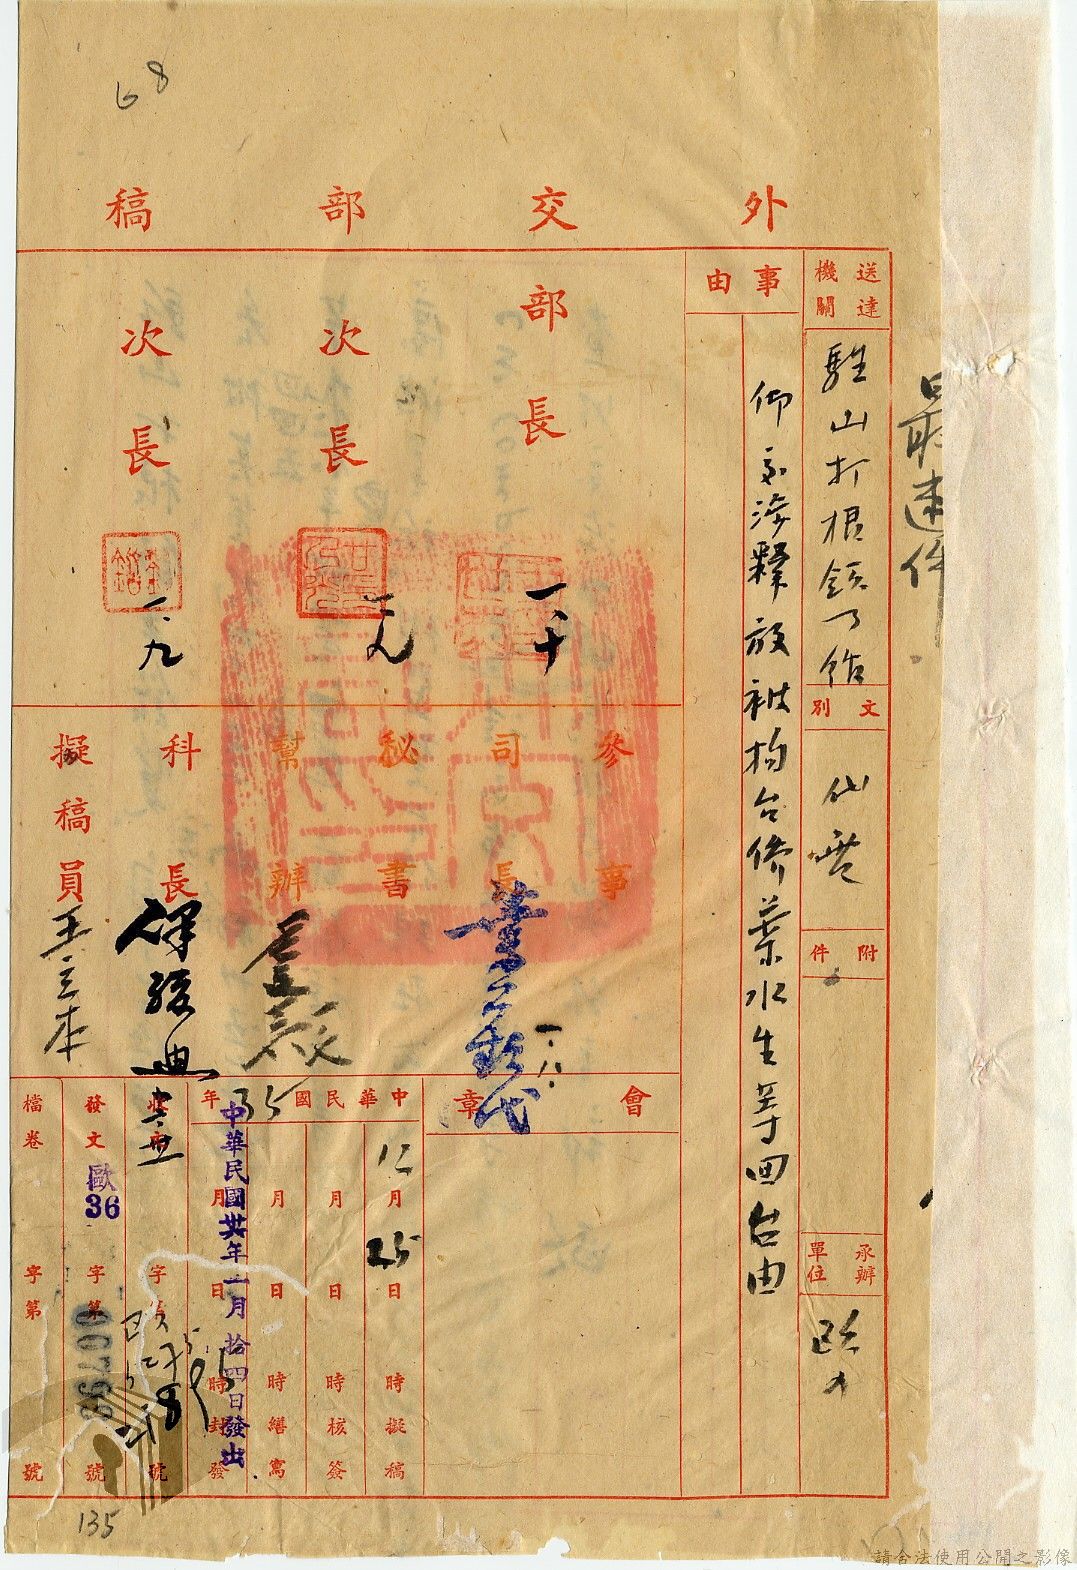 68
外交部稿
最速件
送達機關
駐山打根領事館
文別
代電
附件
承辦單位
歐
事由
仰交涉釋放被拘台僑葉水生等回台由
部長
一、十
次長
一、九
次長
一、九
參事
司長
葉公超代
一、八
秘書
幫辦
科長
擬稿員
王立本
會章
中華民國35年
12月25日 時擬稿
月 日 時核簽
月 日 時繕寫
月 日 時封發
中華民國卅六年一月拾四日發出
收文 字第 號
發文 字第 號
歐36
00793
檔卷 字第 號
135
請合法使用公開之影像